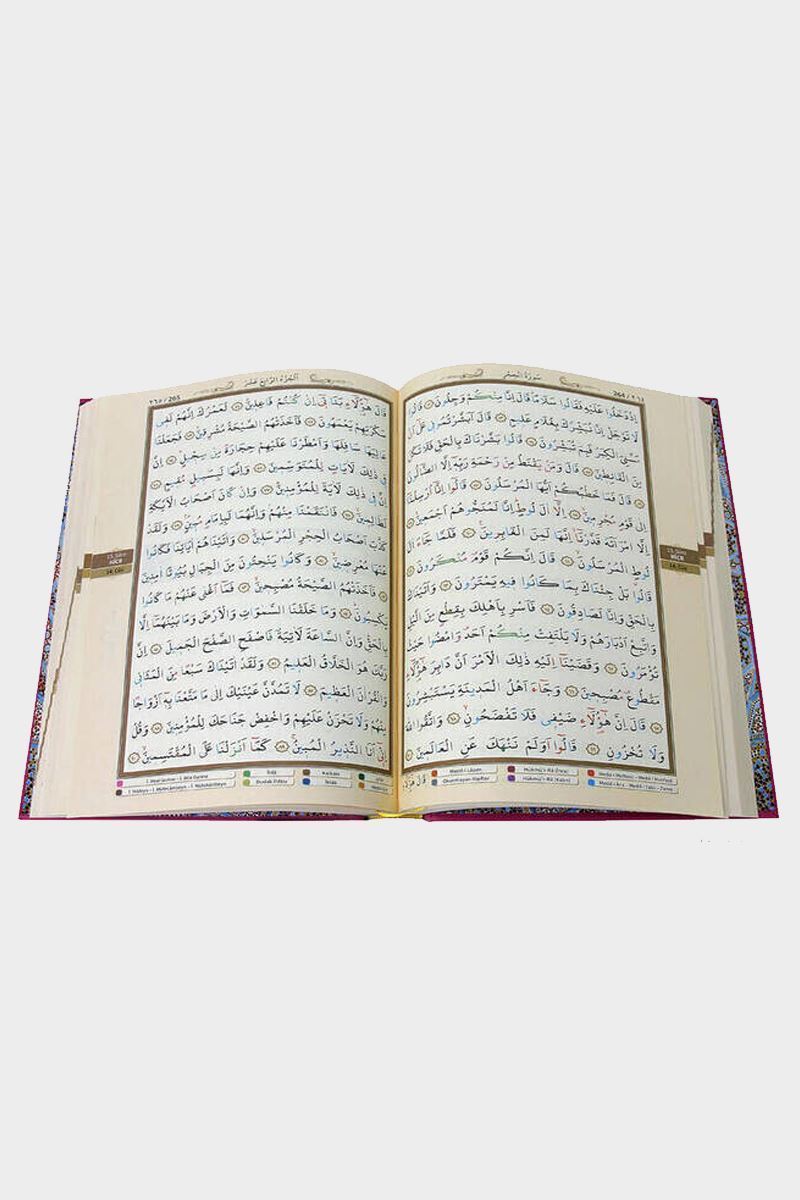 سُورَةُ الْحِجْرِ
264 / ٢٦٤
اِذْ دَخَلُوا عَلَيْهِ فَقَالُوا سَلَامًا قَالَ اِنَّا مِنْكُمْ وَجِلُونَ ﴿٥٢﴾ قَالُوا
لَا تَوْجَلْ اِنَّا نُبَشِّرُكَ بِغُلَامٍ عَلِيمٍ ﴿٥٣﴾ قَالَ اَبَشَّرْتُمُونِي عَلٰٓى اَنْ
مَسَّنِيَ الْكِبَرُ فَبِمَ تُبَشِّرُونَ ﴿٥٤﴾ قَالُوا بَشَّرْنَاكَ بِالْحَقِّ فَلَا تَكُنْ
مِنَ الْقَانِطِينَ ﴿٥٥﴾ قَالَ وَمَنْ يَقْنَطُ مِنْ رَحْمَةِ رَبِّهٖٓ اِلَّا الضَّٓالُّونَ
﴿٥٦﴾ قَالَ فَمَا خَطْبُكُمْ اَيُّهَا الْمُرْسَلُونَ ﴿٥٧﴾ قَالُٓوا اِنَّٓا اُرْسِلْنَٓا
اِلٰى قَوْمٍ مُجْرِمِينَ ﴿٥٨﴾ اِلَّٓا اٰلَ لُوطٍ اِنَّا لَمُنَجُّوهُمْ اَجْمَعِينَ ﴿٥٩﴾
اِلَّا امْرَاَتَهُ قَدَّرْنَٓا اِنَّهَا لَمِنَ الْغَابِرِينَ ﴿٦٠﴾ فَلَمَّا جَٓاءَ اٰلَ
لُوطٍ الْمُرْسَلُونَ ﴿٦١﴾ قَالَ اِنَّكُمْ قَوْمٌ مُنْكَرُونَ ﴿٦٢﴾
قَالُوا بَلْ جِئْنَاكَ بِمَا كَانُوا فِيهِ يَمْتَرُونَ ﴿٦٣﴾ وَاَتَيْنَاكَ
بِالْحَقِّ وَاِنَّا لَصَادِقُونَ ﴿٦٤﴾ فَاَسْرِ بِاَهْلِكَ بِقِطْعٍ مِنَ الَّيْلِ
وَاتَّبِعْ اَدْبَارَهُمْ وَلَا يَلْتَفِتْ مِنْكُمْ اَحَدٌ وَامْضُوا حَيْثُ
تُؤْمَرُونَ ﴿٦٥﴾ وَقَضَيْنَٓا اِلَيْهِ ذٰلِكَ الْاَمْرَ اَنَّ دَابِرَ هٰٓؤُلَٓاءِ
مَقْطُوعٌ مُصْبِحِينَ ﴿٦٦﴾ وَجَٓاءَ اَهْلُ الْمَدِينَةِ يَسْتَبْشِرُونَ
﴿٦٧﴾ قَالَ اِنَّ هٰٓؤُلَٓاءِ ضَيْفِي فَلَا تَفْضَحُونِ ﴿٦٨﴾ وَاتَّقُوا اللّٰهَ
وَلَا تُخْزُونِ ﴿٦٩﴾ قَالُٓوا اَوَلَمْ نَنْهَكَ عَنِ الْعَالَمِينَ ﴿٧٠﴾
قَالَ هٰٓؤُلَٓاءِ
15. Sûre
HİCR
14. Cüz
Medd-i Lâzım
Hükmü'r-Râ (İnce)
Okunmayan Harfler
Hükmü'r-Râ (Kalın)
اَلْجُزْءُ الرَّابِعُ عَشَرَ
٢٦٥ / 265
قَالَ هٰٓؤُلَٓاءِ بَنَاتِٓي اِنْ كُنْتُمْ فَاعِلِينَ ﴿٧١﴾ لَعَمْرُكَ اِنَّهُمْ لَفِي
سَكْرَتِهِمْ يَعْمَهُونَ ﴿٧٢﴾ فَاَخَذَتْهُمُ الصَّيْحَةُ مُشْرِقِينَ ﴿٧٣﴾ فَجَعَلْنَا
عَالِيَهَا سَافِلَهَا وَاَمْطَرْنَا عَلَيْهِمْ حِجَارَةً مِنْ سِجِّيلٍ ﴿٧٤﴾ اِنَّ
فِي ذٰلِكَ لَاٰيَاتٍ لِلْمُتَوَسِّمِينَ ﴿٧٥﴾ وَاِنَّهَا لَبِسَبِيلٍ مُقِيمٍ ﴿٧٦﴾
اِنَّ فِي ذٰلِكَ لَاٰيَةً لِلْمُؤْمِنِينَ ﴿٧٧﴾ وَاِنْ كَانَ اَصْحَابُ الْاَيْكَةِ
لَظَالِمِينَ ﴿٧٨﴾ فَانْتَقَمْنَا مِنْهُمْ وَاِنَّهُمَا لَبِاِمَامٍ مُبِينٍ ﴿٧٩﴾ وَلَقَدْ
كَذَّبَ اَصْحَابُ الْحِجْرِ الْمُرْسَلِينَ ﴿٨٠﴾ وَاٰتَيْنَاهُمْ اٰيَاتِنَا فَكَانُوا
عَنْهَا مُعْرِضِينَ ﴿٨١﴾ وَكَانُوا يَنْحِتُونَ مِنَ الْجِبَالِ بُيُوتًا اٰمِنِينَ
﴿٨٢﴾ فَاَخَذَتْهُمُ الصَّيْحَةُ مُصْبِحِينَ ﴿٨٣﴾ فَمَٓا اَغْنٰى عَنْهُمْ مَا كَانُوا
يَكْسِبُونَ ﴿٨٤﴾ وَمَا خَلَقْنَا السَّمٰوَاتِ وَالْاَرْضَ وَمَا بَيْنَهُمَٓا اِلَّا
بِالْحَقِّ وَاِنَّ السَّاعَةَ لَاٰتِيَةٌ فَاصْفَحِ الصَّفْحَ الْجَمِيلَ ﴿٨٥﴾ اِنَّ
رَبَّكَ هُوَ الْخَلَّاقُ الْعَلِيمُ ﴿٨٦﴾ وَلَقَدْ اٰتَيْنَاكَ سَبْعًا مِنَ الْمَثَانِي
وَالْقُرْاٰنَ الْعَظِيمَ ﴿٨٧﴾ لَا تَمُدَّنَّ عَيْنَيْكَ اِلٰى مَا مَتَّعْنَا بِهٖٓ اَزْوَاجًا
مِنْهُمْ وَلَا تَحْزَنْ عَلَيْهِمْ وَاخْفِضْ جَنَاحَكَ لِلْمُؤْمِنِينَ ﴿٨٨﴾ وَقُلْ
اِنِّٓي اَنَا النَّذِيرُ الْمُبِينُ ﴿٨٩﴾ كَمَٓا اَنْزَلْنَا عَلَى الْمُقْتَسِمِينَ ﴿٩٠﴾
15. Sûre
HİCR
14. Cüz
İhfâ
Kalkale
Dudak İhfâsı
İklâb